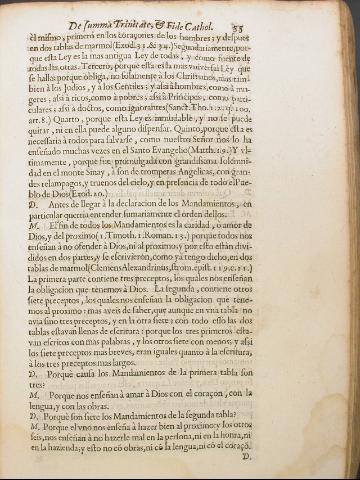 De summa Trinitate, & Fide Cathol. 53
él mismo, primero en los coraçones de los hombres; y despues
en dos tablas de marmol(Exod.31.& 34.)Segundariamente, por
que esta Ley es la mas antigua Ley de todas, y como fuente de
todas las otras. Tercero, porque esta es la mas vniversal Ley que
se halla; porque obliga, no solamente à los Christianos, mas tam
bien à los Judios, y à los Gentiles: y assi à hombres, como à mu
geres; assi à ricos, como à pobres; assi à Principes, como parti-
culares: assi à doctos, como ignorantes(Sanct.Tho.1.2.q.100.
art.8.) Quarto, porque esta Ley es inmudable, y no se puede
quitar, ni en ella puede alguno dispensar. Quinto, porque esta es
necessaria à todos para salvarse, como nuestro Señor nos lo ha
enseñado muchas vezes en el Santo Evangelio(Matth.19.)Y vl-
timamente, porque fue promulgada con grandissima solemni-
dad en el monte Sinay, à son de trompetas Angelicas, con gran-
des relampagos, y truenos del cielo, y en presencia de todo el Pue-
blo de Dios(Exod.20.)
D. Antes de llegar à la declaracion de los Mandamientos, en
particular querria entender sumariamente el orden dellos.
M. El fin de todos los Mandamientos es la caridad, o amor de
Dios, y del proximo(1.Timoth.1.Roman.13.) porque todos nos
enseñan à no ofender à Dios, ni al proximo; y por esto estàn divi-
didos en dos partes, y se escrivieròn, como yà tengo dicho, en dos
tablas de marmol(Clemens Alexandrinus, strom.epist.119.c.11.)
La primera parte contiene tres preceptos, los quales nos enseñan
la obligacion que tenemos à Dios. La segunda, contiene otros
siete preceptos, los quales nos enseñan la obligacion que tene-
mos al proximo: mas aveis de saber, que aunque en vna tabla no
avia sino tres preceptos, y en la otra siete; con todo esso las dos
tablas estavan llenas de escritura: porque los tres primeros esta-
van escritos con mas palabras, y los otros siete con menos: y assi
los siete preceptos mas breves, eran iguales quanto à la escritura,
à los tres preceptos mas largos.
D. Porquè causa los Mandamientos de la primera tabla son
tres?
M. Porque nos enseñan à amar à Dios con el coraçon, con la
lengua, y con las obras.
D. Porquè son siete los Mandamientos de la segunda tabla?
M. Porque el vno nos enseña à hazer bien al proximo: y los otros
seis, nos enseñan à no hazerle mal en la persona, ni en la honra, ni
en la hazienda; y esto no cò obras, ni cò la lengua, ni cò el coraçõ.
D.